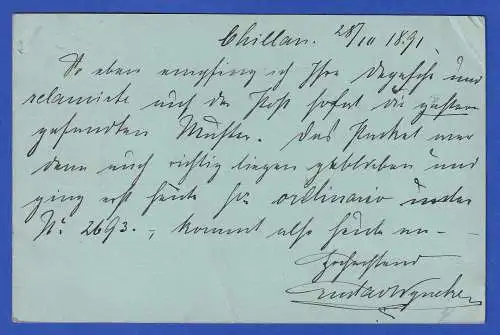 Chillan. 28/III 1891
So eben empfing ich Ihre Depesche und
reclamirte auf der Post sofort die gestern
gesandten Muster. Das Packet war
denn auch richtig liegen geblieben und
ging erst heute per ordinario unter
No 2693.-, kommt also heute an.-
Hochachtend